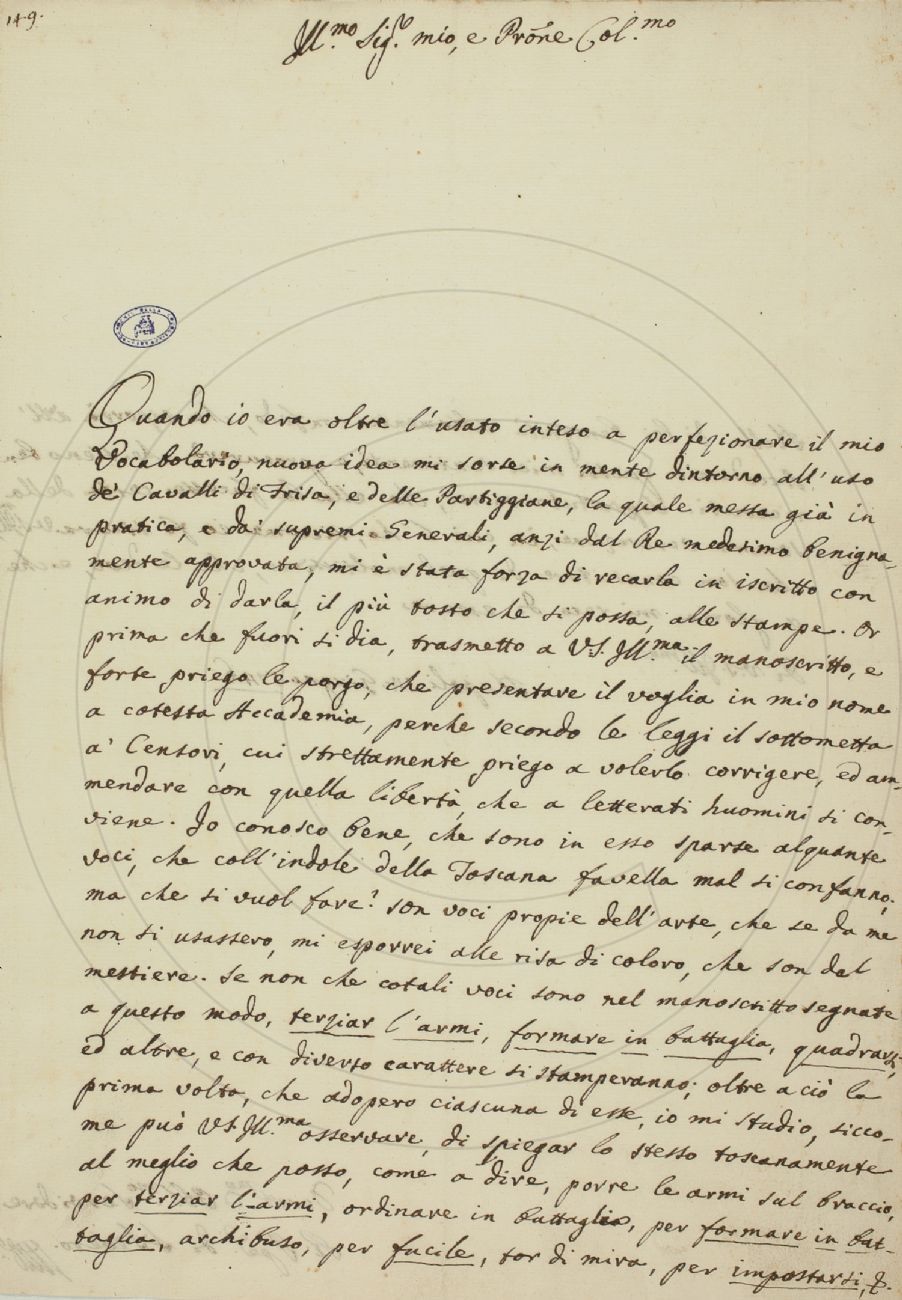 149.
Ill.mo Sig.r mio, e Prōne Col.mo
Quando io era oltre l'usato inteso a perfezionare il mio
Vocabolario, nuova idea mi sorse in mente dintorno all'uso
de' Cavalli di Frisa, e delle Partiggiane, la quale messa già in
pratica, e da' supremi Generali, anzi dal Re medesimo benigna-
mente approvata, mi è stata forza di recarla in iscritto con
animo di darla, il più tosto che si possa, alle stampe. Or
prima che fuori si dia, trasmetto a VS. Ill.ma il manoscritto, e
forte priego le porgo, che presentare il voglia in mio nome
a cotesta Accademia, perche secondo le leggi il sottometta
a' Censori, cui strettamente priego a volerlo corrigere, ed am-
mendare con quella libertà, che a letterati huomini si con-
viene. Io conosco bene, che sono in esso sparse alquante
voci, che coll'indole della Toscana favella mal si confanno;
ma che si vuol fare? son voci propie dell'arte, che se da me
non si usassero, mi esporrei alle risa di coloro, che son del
mestiere. Se non che cotali voci sono nel manoscritto segnate
a questo modo, terziar l'armi, formare in battaglia, quadrarsi,
ed altre, e con diverso carattere si stamperanno; oltre a ciò la
prima volta, che adopero ciascuna di esse, io mi studio, sicco-
me può VS. Ill.ma osservare, di spiegar lo stesso toscanamente
al meglio che posso, come a dire, porre le armi sul braccio,
per terziar l'armi, ordinare in battaglia, per formare in bat-
taglia, archibuso, per fucile, tor di mira, per impostarsi, &.